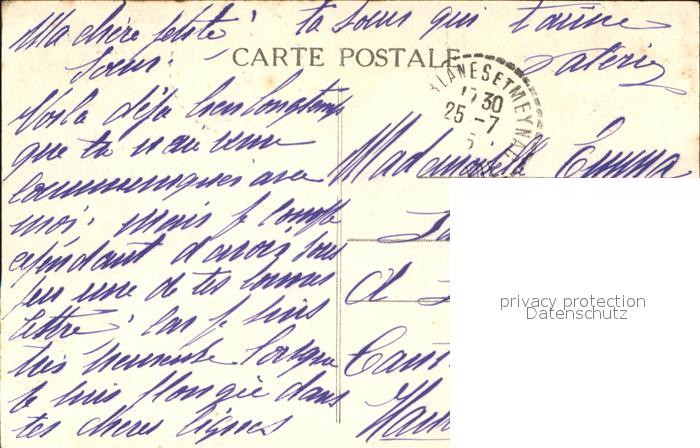 Ma chère petite
Soeur.
Voilà déjà bien longtemps
que tu n'a eu
communiquer avec
moi. mais je compte
cependant d'avoir sous
peu une de tes bonnes
lettre. car je suis
très heureuse lorsque
je suis plongée dans
tes chères lignes
ta soeur qui t'aime
Valérie
CARTE POSTALE
ET MEYNA
17 30
25 - 7
Mademoiselle Emma
à
privacy protection
Datenschutz